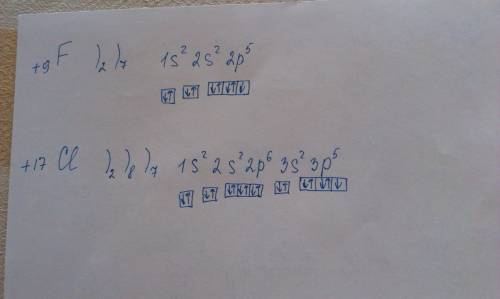 +9 F )2 )7 1s² 2s² 2p⁵
↓↑ ↓↑ ↓↑ ↓↑ ↓
+17 Cl )2 )8 )7 1s² 2s² 2p⁶ 3s² 3p⁵
↓↑ ↓↑ ↓↑ ↓↑ ↓↑ ↓↑ ↓↑ ↓↑ ↓